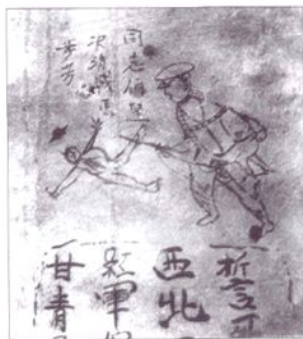 同志們坚
决消滅馬
步芳
西北
紅軍
甘青